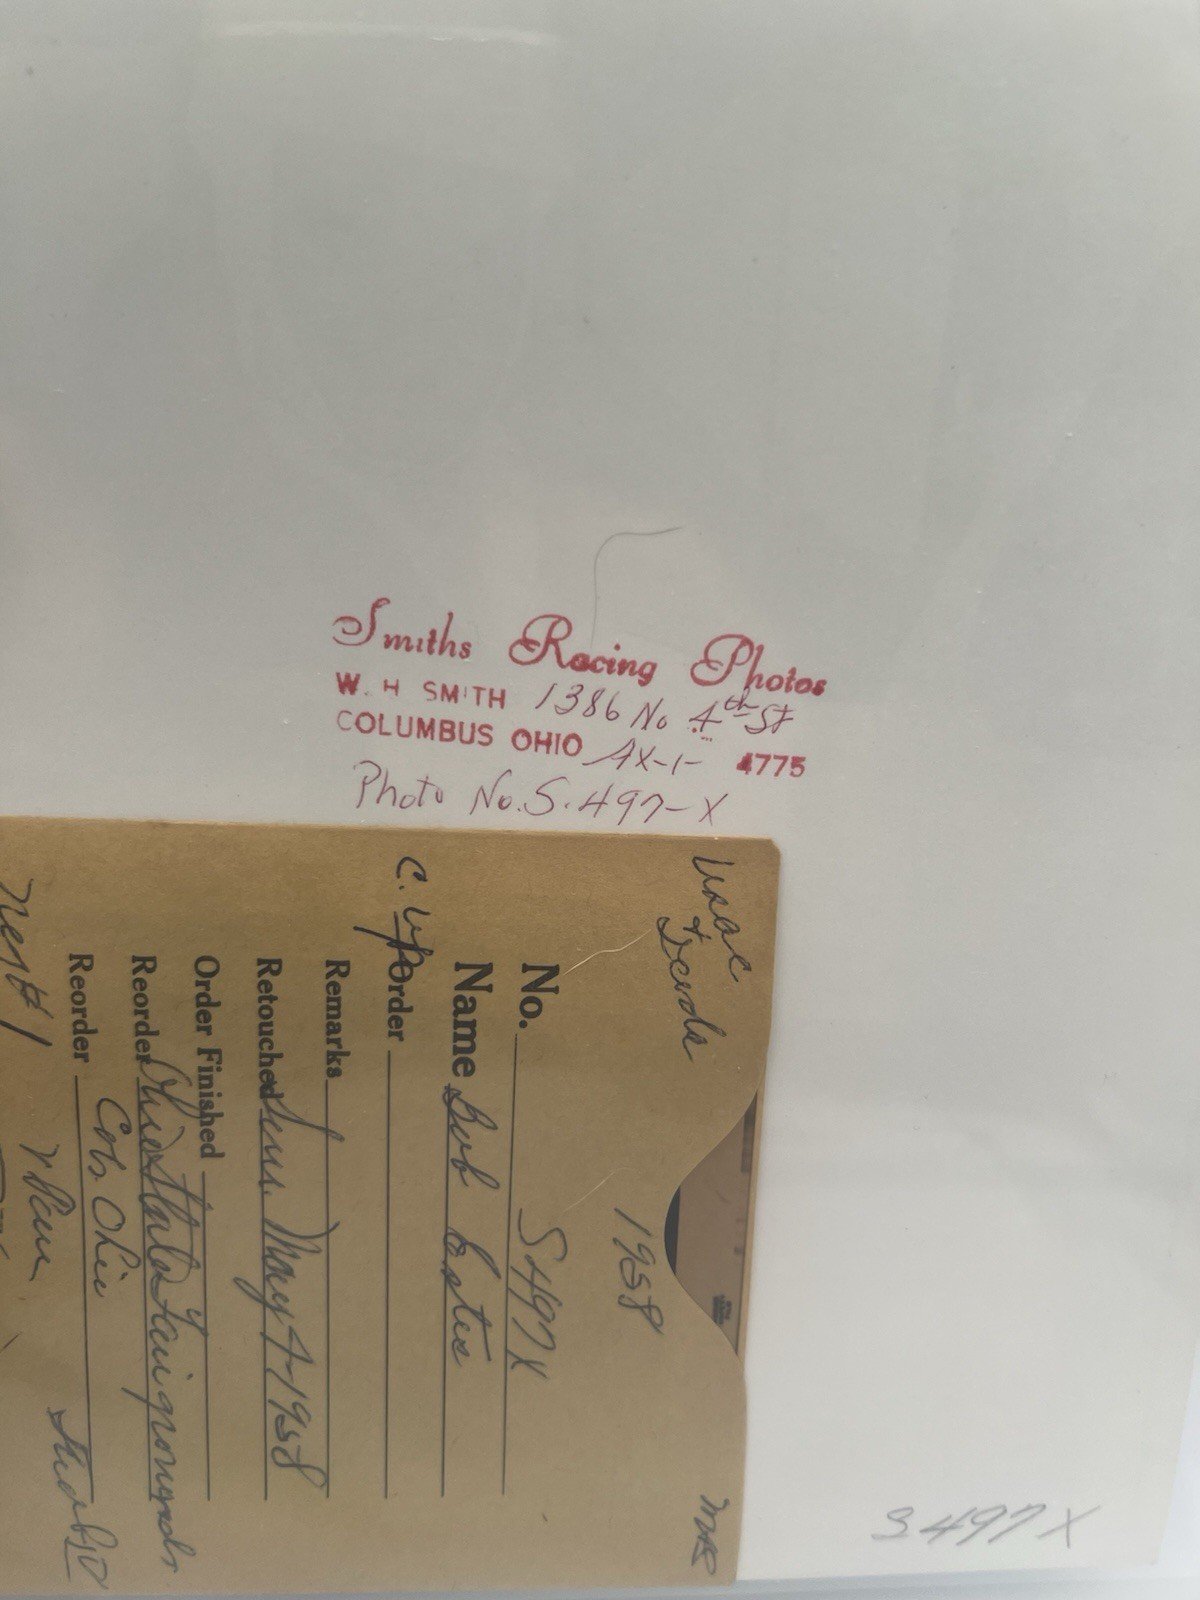 Smiths Racing Photos
W. H SMITH 1386 No 4th St
COLUMBUS OHIO AX-1- 4775
Photo No. S. 497-X
1958
No. S497X
Name Bob Estes
C. up Order
Remarks
Retouched Sun. May 4-1958
Order Finished
Reorder Ohio State Fairgrounds
Reorder Cols. Ohio
Neg # 1
S497X